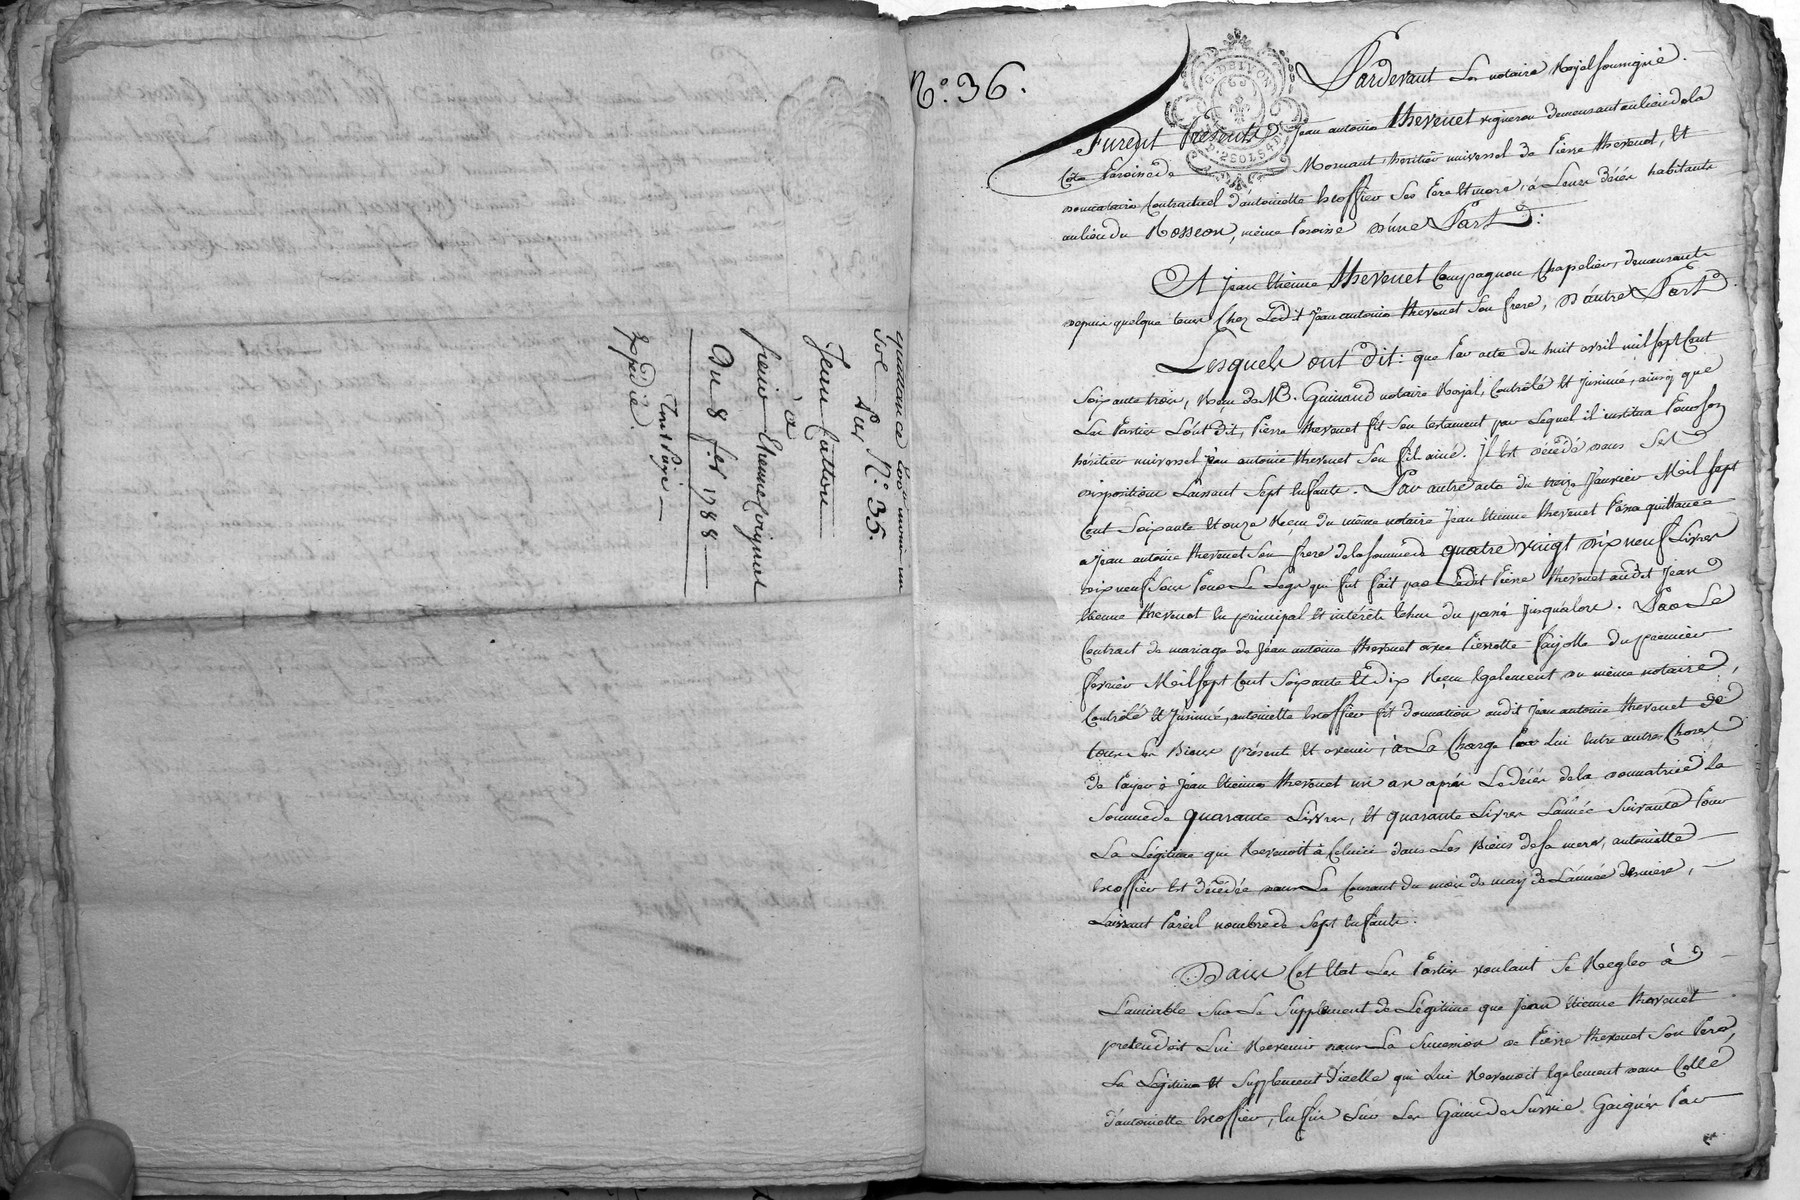 quittance
Sol Pur N.° 35.
Jean Catton
à
frere Etienne Coignet
Du 8 f.er 1788
Tout Payé
Expedié
N.° 36.
G. DE LYON
D. 2 SOLS 4 D.
Pardevant Les notaire Royal Soussigné.
Furent presents Jean antoine thevenet vigneron demeurant au lieu de la
Côte Paroisse de Mornant heritier universel de Pierre thevenet, Et
donnataire Contractuel d'antoinette Escoffier Ses Pere Et mere, à Leurs décés habitants
au lieu du Rosseon, même Paroisse d'une Part:
Et jean Etienne thevenet Compagnon Chapelier, demeurant
depuis quelque tems Chez Ledit Jean antoine thevenet Son frere, D'autre Part.
Lesquels ont dit: que Par acte du huit avril mil Sept Cent
Soixante trois, Reçu de M.e Guinand notaire Royal, Controlé et Insinué, ainsy que
Les Parties L'ont dit, Pierre thevenet fit Son testament par Lequel il institua Pour Son
héritier universel Jean antoine thevenet Son fils ainé. Il Est décédé dans Ses
dispositions Laissant Sept Enfants. Par autre acte du treize Janvier Mil Sept
Cent Soixante Et onze Reçu du même notaire Jean Etienne thevenet Passa quittance
a Jean antoine thevenet Son frere de la Somme de quatre vingt dix neuf Livres
dix neuf Sous Pour Le Legs qui fut fait par Ledit Pierre thevenet audit Jean
Etienne thevenet En principal Et intérêts Echus du passé Jusqu'alors. Par Le
Contract de mariage de Jean antoine thevenet avec Pierrette Fayolle du premier
fevrier Mil Sept Cent Soixante Et dix Reçu Egalement du même notaire,
Controlé Et Insinué, antoinette Escoffier fit donnation audit Jean antoine thevenet de
tous Ses Biens présent Et avenir, à La Charge Par Lui Entre autres Choses
de Payer à Jean Etienne thevenet un an après Le décés de la donnatrice La
Somme de quarante Livres, Et quarante Livres L'année Suivante Pour
La Légitime qui Revenoit à Celuici dans Les Biens de Sa mere, antoinette
Escoffier Est décédée dans Le Courant du mois de may de L'année derniere,
Laissant Pareil nombre de Sept Enfants.
Dans Cet Etat Les Parties voulant Se Regler à
L'amiable Sur Le Supplement de Légitime que Jean Etienne thevenet
pretendoit Lui Revenir dans La Succession de Pierre thevenet Son Pere,
La Légitime Et Supplement d'icelle qui Lui Revenoit Egalement dans Celle
d'antoinette Escoffier, Enfin Sur Les Gains de Survie Gaignés Par